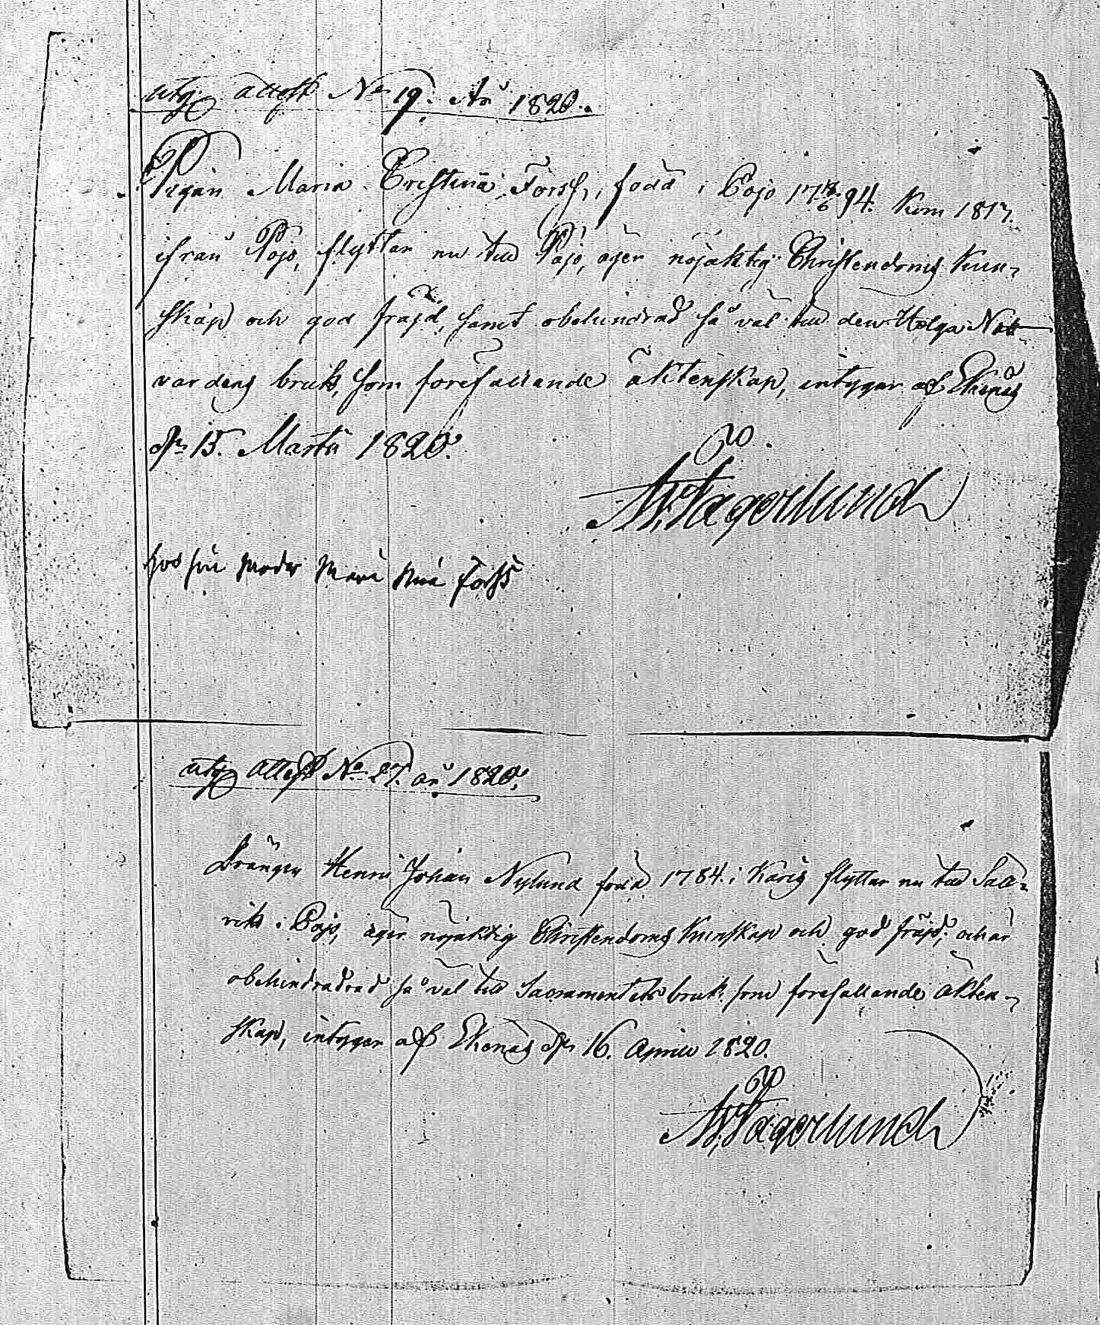 utg. attest No 19. År 1820.
Pigan Maria Cristina Forss, född i Pojo 17 94. kom 1817.
ifrån Pojo, flyttar nu till Pojo, äger nöjaktig Christendoms kun-
skap och god fräjd, samt obehindrad så väl till den Helga Natt-
vardens bruk, som förefallande äktenskap, intygar af Ekenäs
d. 15. Martii 1820.
Fagerlund
hos sin moder Maria Forss
utg attest No 27. år 1820.
Drängen Henric Johan Nylund född 1784. i Karis flyttar nu till Sall-
vik i Pojo, äger nöjaktig Christendoms kunskap och god fräjd, och är
obehindradrad så väl till Sacramentets bruk som förefallande äkten-
skap, intygar af Ekenäs d. 16. Aprill 1820.
Fagerlund